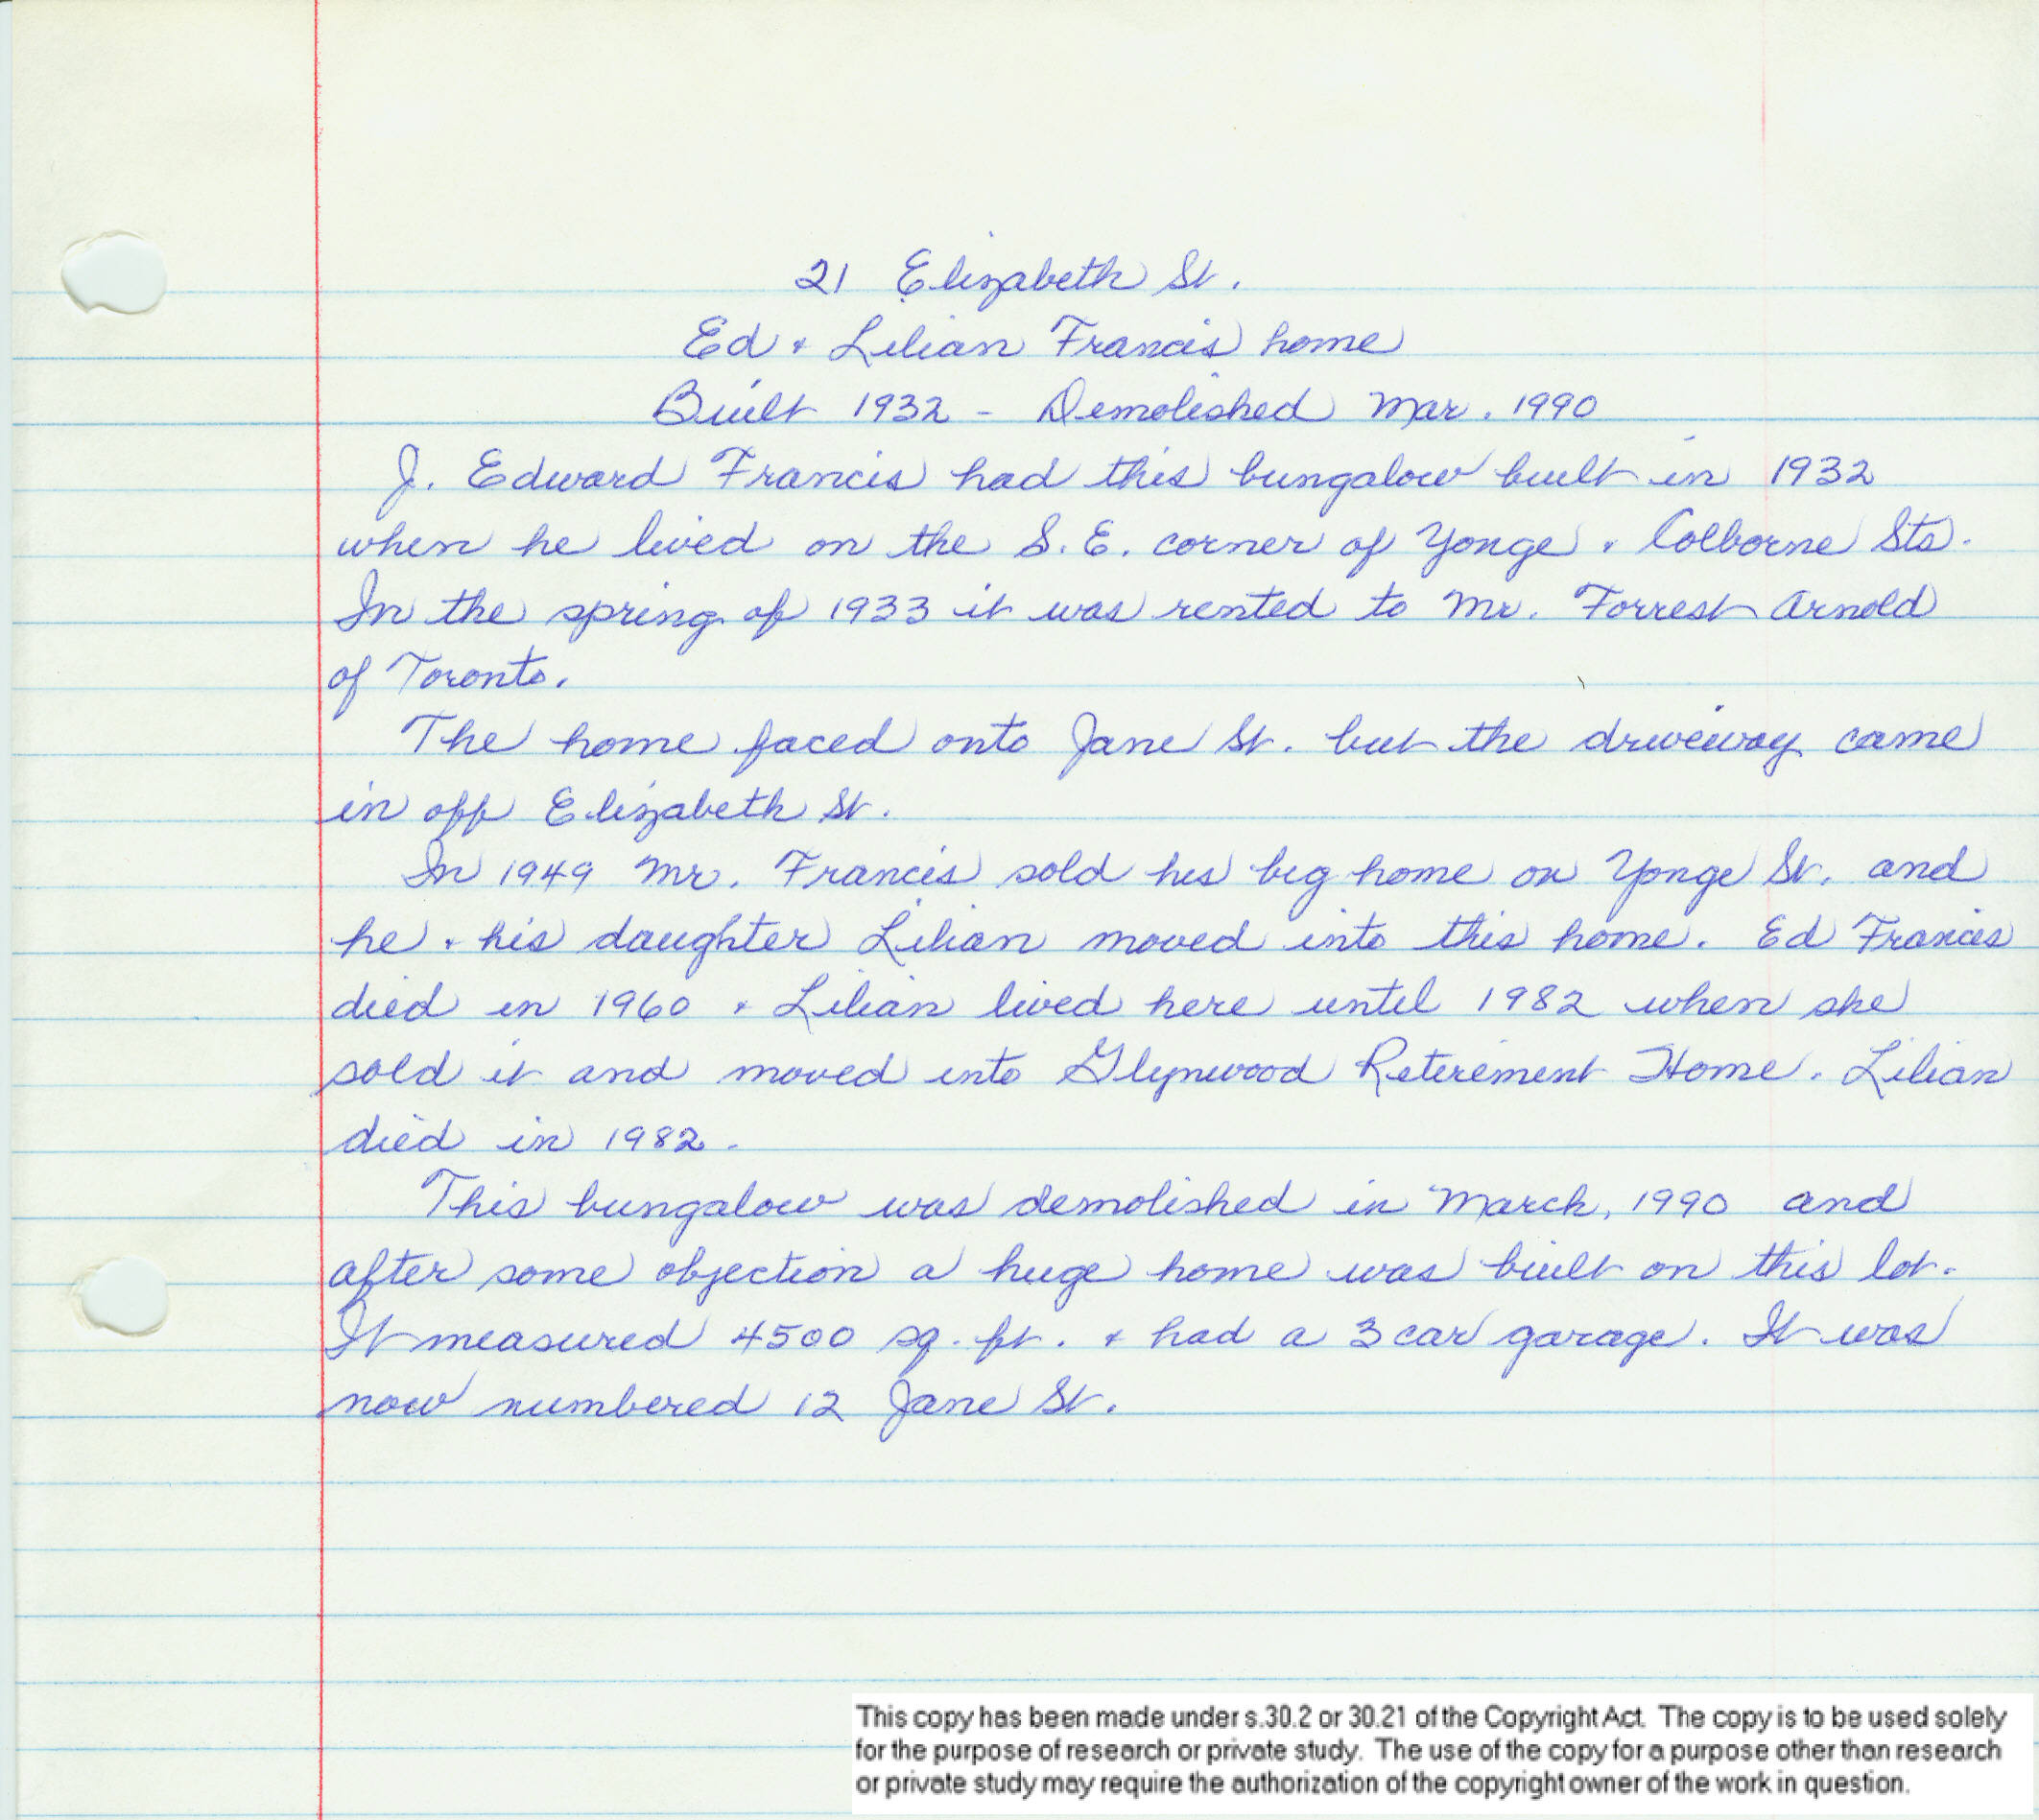 21 Elizabeth St.
Ed & Lilian Francis home
Built 1932 - Demolished Mar. 1990
J. Edward Francis had this bungalow built in 1932
when he lived on the S.E. corner of Yonge & Colborne Sts.
In the spring of 1933 it was rented to Mr. Forrest Arnold
of Toronto.
The home faced onto Jane St. but the driveway came
in off Elizabeth St.
In 1949 Mr. Francis sold his big home on Yonge St. and
he & his daughter Lilian moved into this home. Ed Francis
died in 1960 & Lilian lived here until 1982 when she
sold it and moved into Glynwood Retirement Home. Lilian
died in 1982.
This bungalow was demolished in March, 1990 and
after some objection a huge home was built on this lot.
It measured 4500 sq. ft. & had a 3 car garage. It was
now numbered 12 Jane St.
This copy has been made under s.30.2 or 30.21 of the Copyright Act. The copy is to be used solely
for the purpose of research or private study. The use of the copy for a purpose other than research
or private study may require the authorization of the copyright owner of the work in question.